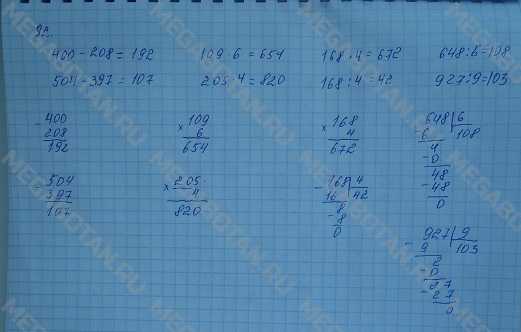 92.
400 - 208 = 192 109 · 6 = 654 168 · 4 = 672 648 : 6 = 108
504 - 397 = 107 205 · 4 = 820 168 : 4 = 42 927 : 9 = 103
- 400 × 109 × 168 648 | 6
208 6 4 - 6 108
192 654 672 4
- 0
- 504 × 205 - 168 | 4 48
397 4 16 42 - 48
107 820 8 0
- 8
0
- 927 | 9
9 103
2
- 0
27
- 27
0
MEGABOTAN.RU